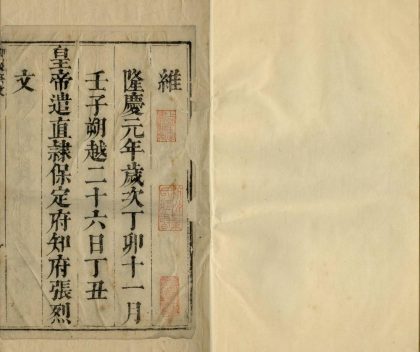 維
隆慶元年歲次丁卯十一月
壬子朔越二十六日丁丑
皇帝遣直隷保定府知府張烈
文